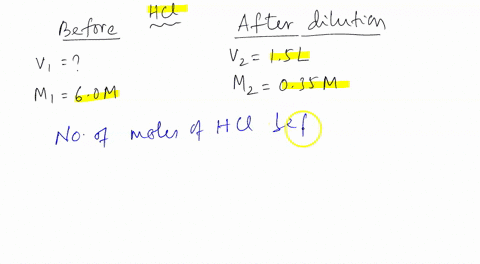 HCl
Before After dilution
V₁ = ? V₂ = 1.5 L
M₁ = 6.0 M M₂ = 0.35 M
No. of moles of HCl bef